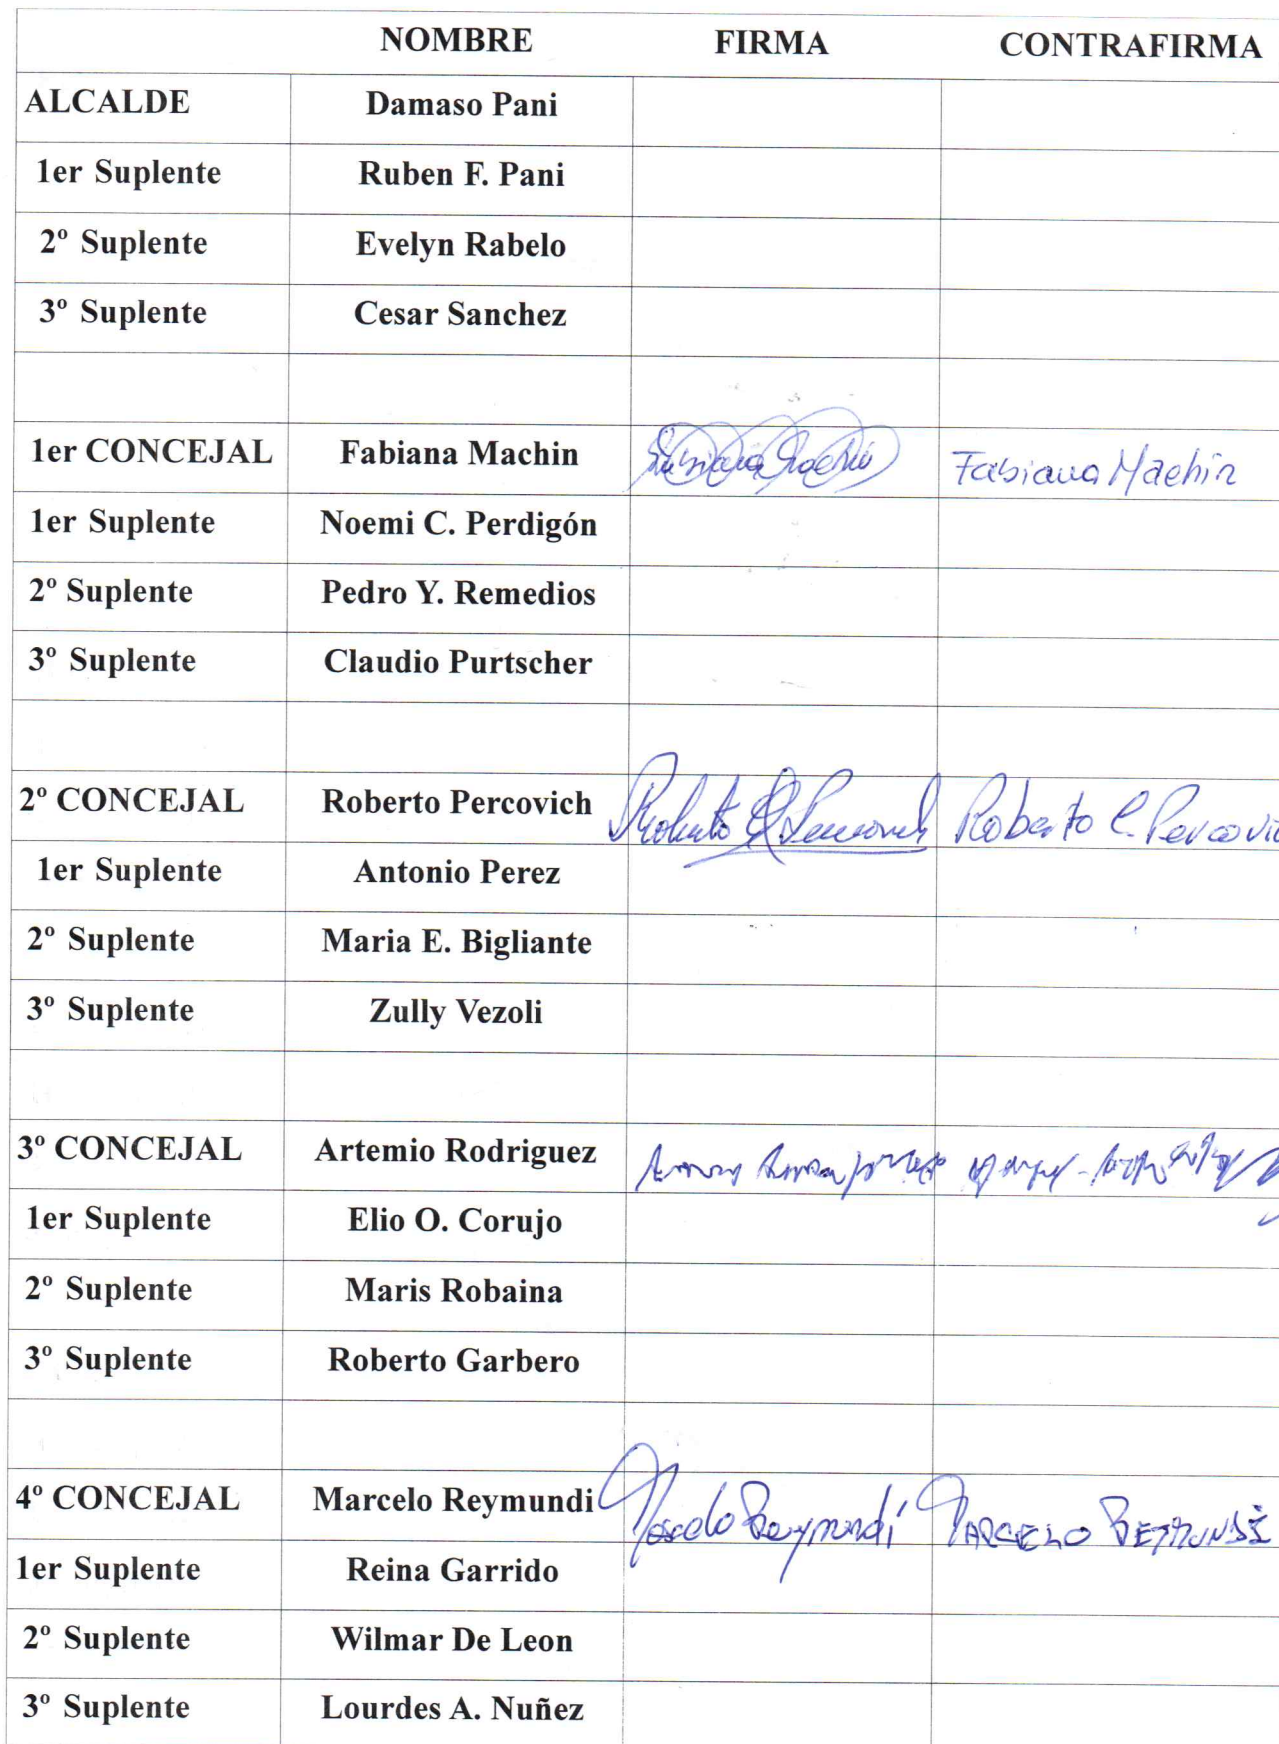 NOMBRE FIRMA CONTRAFIRMA
ALCALDE Damaso Pani
1er Suplente Ruben F. Pani
2º Suplente Evelyn Rabelo
3º Suplente Cesar Sanchez
1er CONCEJAL Fabiana Machin Fabiana Machin Fabiana Machin
1er Suplente Noemi C. Perdigón
2º Suplente Pedro Y. Remedios
3º Suplente Claudio Purtscher
2º CONCEJAL Roberto Percovich Roberto C. Percovich Roberto C. Percovic
1er Suplente Antonio Perez
2º Suplente Maria E. Bigliante
3º Suplente Zully Vezoli
3º CONCEJAL Artemio Rodriguez
1er Suplente Elio O. Corujo
2º Suplente Maris Robaina
3º Suplente Roberto Garbero
4º CONCEJAL Marcelo Reymundi Marcelo Reymundí MARCELO REYMUNDÍ
1er Suplente Reina Garrido
2º Suplente Wilmar De Leon
3º Suplente Lourdes A. Nuñez